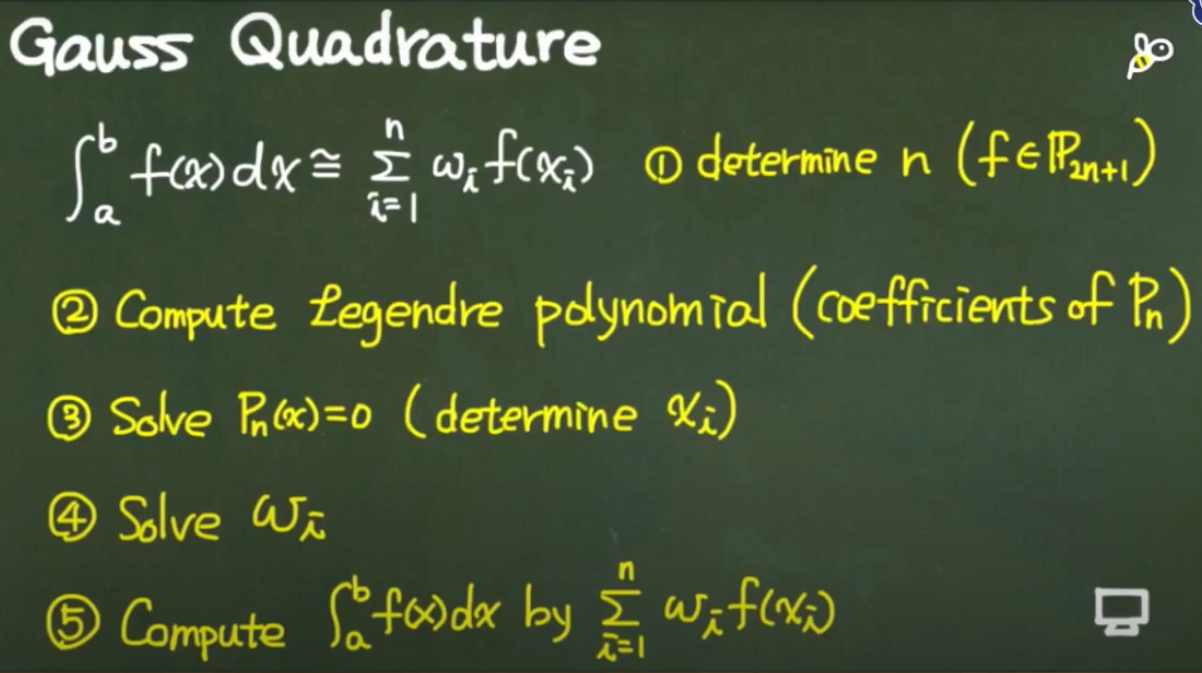 Gauss Quadrature
∫_a^b f(x)dx ≅ Σ_{i=1}^n ω_i f(x_i) ① determine n (f∈ℙ_{2n+1})
② Compute Legendre polynomial (coefficients of P_n)
③ Solve P_n(x)=0 (determine x_i)
④ Solve ω_i
⑤ Compute ∫_a^b f(x)dx by Σ_{i=1}^n ω_i f(x_i)